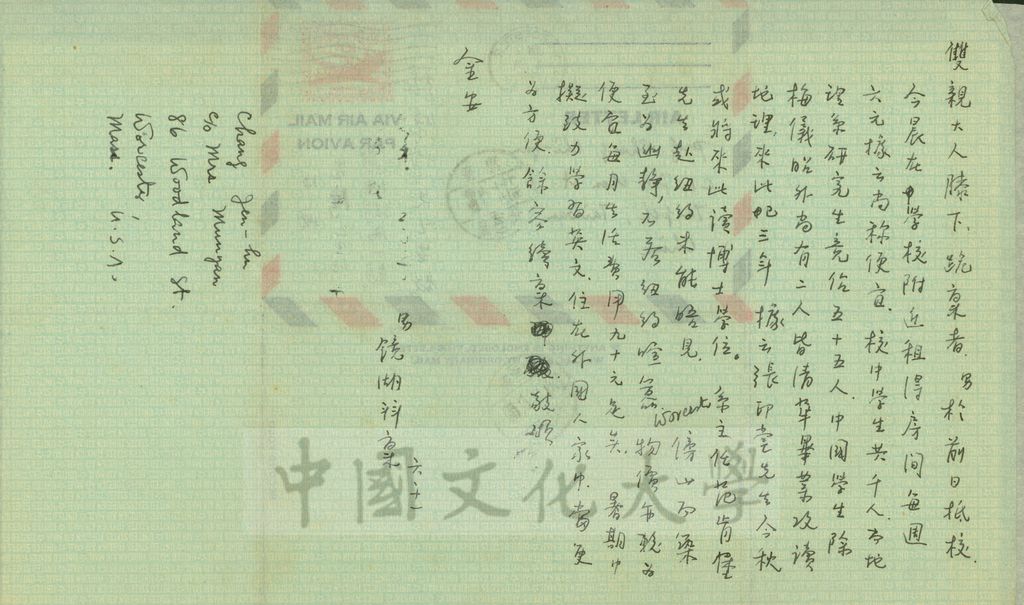 雙親大人膝下、跪稟者男於前日抵校.
今晨在中學校附近租得房間每週
六元據云尚称便宜.校中學生共千人.而地
理系研究生竟佔五十五人.中國學生除
梅儀昭外尚有二人皆清華畢業攻讀
地理.來此已三年 據云張印堂先生今秋
或將來此讀博士學位。系主任范肯堡
先生赴紐約未能晤見. Worcester 傍山而築
至為幽靜,不若紐約喧囂物價亦較為
便宜每月生活費用九十元足矣.暑期中
擬致力學習英文.住在外國人家中.當更
為方便.餘容續稟 敬頌
金安
男 鏡湖 拜稟 六、十二
Chang Jen-hu
c/o Mrs Mungan
86 Woodland St.
Worcester,
Mass. U.S.A.
VIA AIR MAIL
PAR AVION
AIR LETTER
中國文化大學